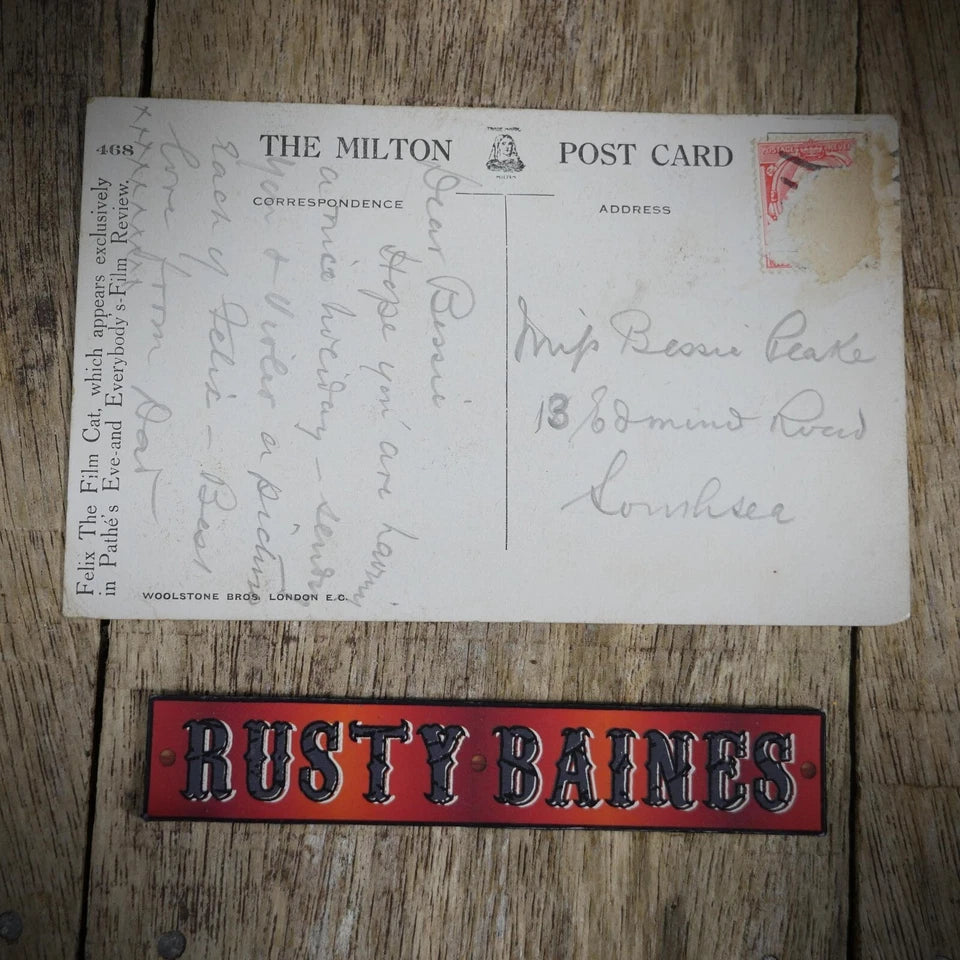 468
Felix The Film Cat, which appears exclusively
in Pathé's Eve-and Everybody's-Film Review.
THE MILTON POST CARD
TRADE MARK
MILTON
CORRESPONDENCE
ADDRESS
Dear Bessie
Hope you are having
a nice holiday – sending
you & Violet a picture
each of Felix – Best
love from Dad –
xxxxxxxxxx
Miss Bessie Peake
13 Edmund Road
Southsea
WOOLSTONE BROS. LONDON E.C.
RUSTY BAINES